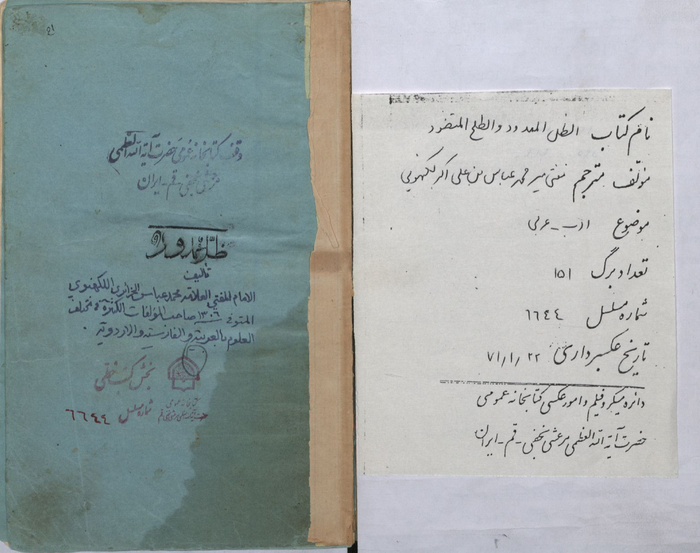 21
وقف کتابخانه عمومی حضرت آیة الله العظمی
مرعشی نجفی - قم - ایران
ظل ممدود
تالیف
الامام المفتی العلامه محمد عباس الجزایری اللکهنوی
المتوفی ١٣٠٦ صاحب المؤلفات الکثیرة فی مختلف
العلوم بالعربیة والفارسیة والاردویة
بخش کتب خطی
شماره مسلسل ٦٦٤٤
نام کتاب الظل الممدود والطلح المنضود
مؤلف مترجم مفتی میر محمد عباس بن علی اکبر لکهنوی
موضوع ادب - عربی
تعداد برگ ١٥١
شماره مسلسل ٦٦٤٤
تاریخ عکسبرداری ٧١/١/٢٢
دائره میکروفیلم و امور عکسی کتابخانه عمومی
حضرت آیة الله العظمی مرعشی نجفی - قم - ایران